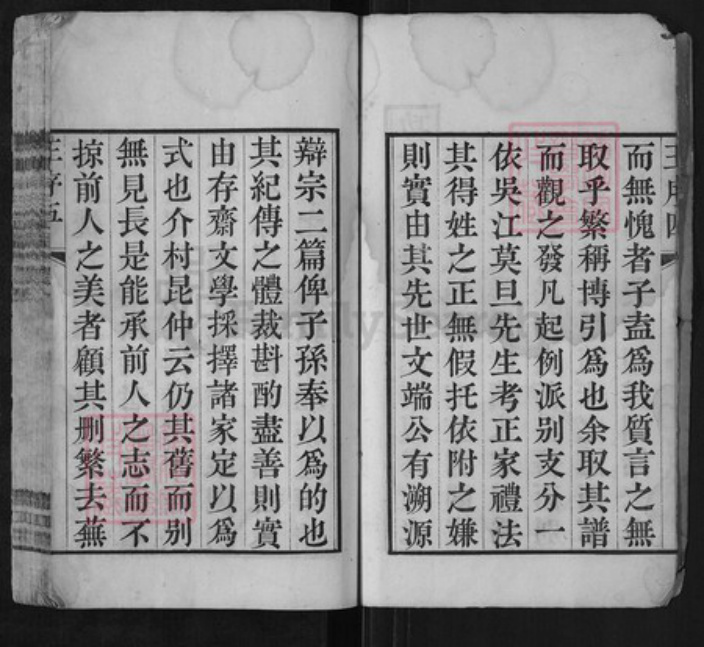 而無愧者子盍爲我質言之無
取乎繁稱博引爲也余取其譜
而觀之發凡起例派别支分一
依吳江莫旦先生考正家禮法
其得姓之正無假托依附之嫌
則實由其先世文端公有溯源
辯宗二篇俾子孫奉以爲的也
其紀傳之體裁斟酌盡善則實
由存齋文學採擇諸家定以爲
式也介村昆仲云仍其舊而别
無見長是能承前人之志而不
掠前人之美者顧其刪繁去蕪
王序五